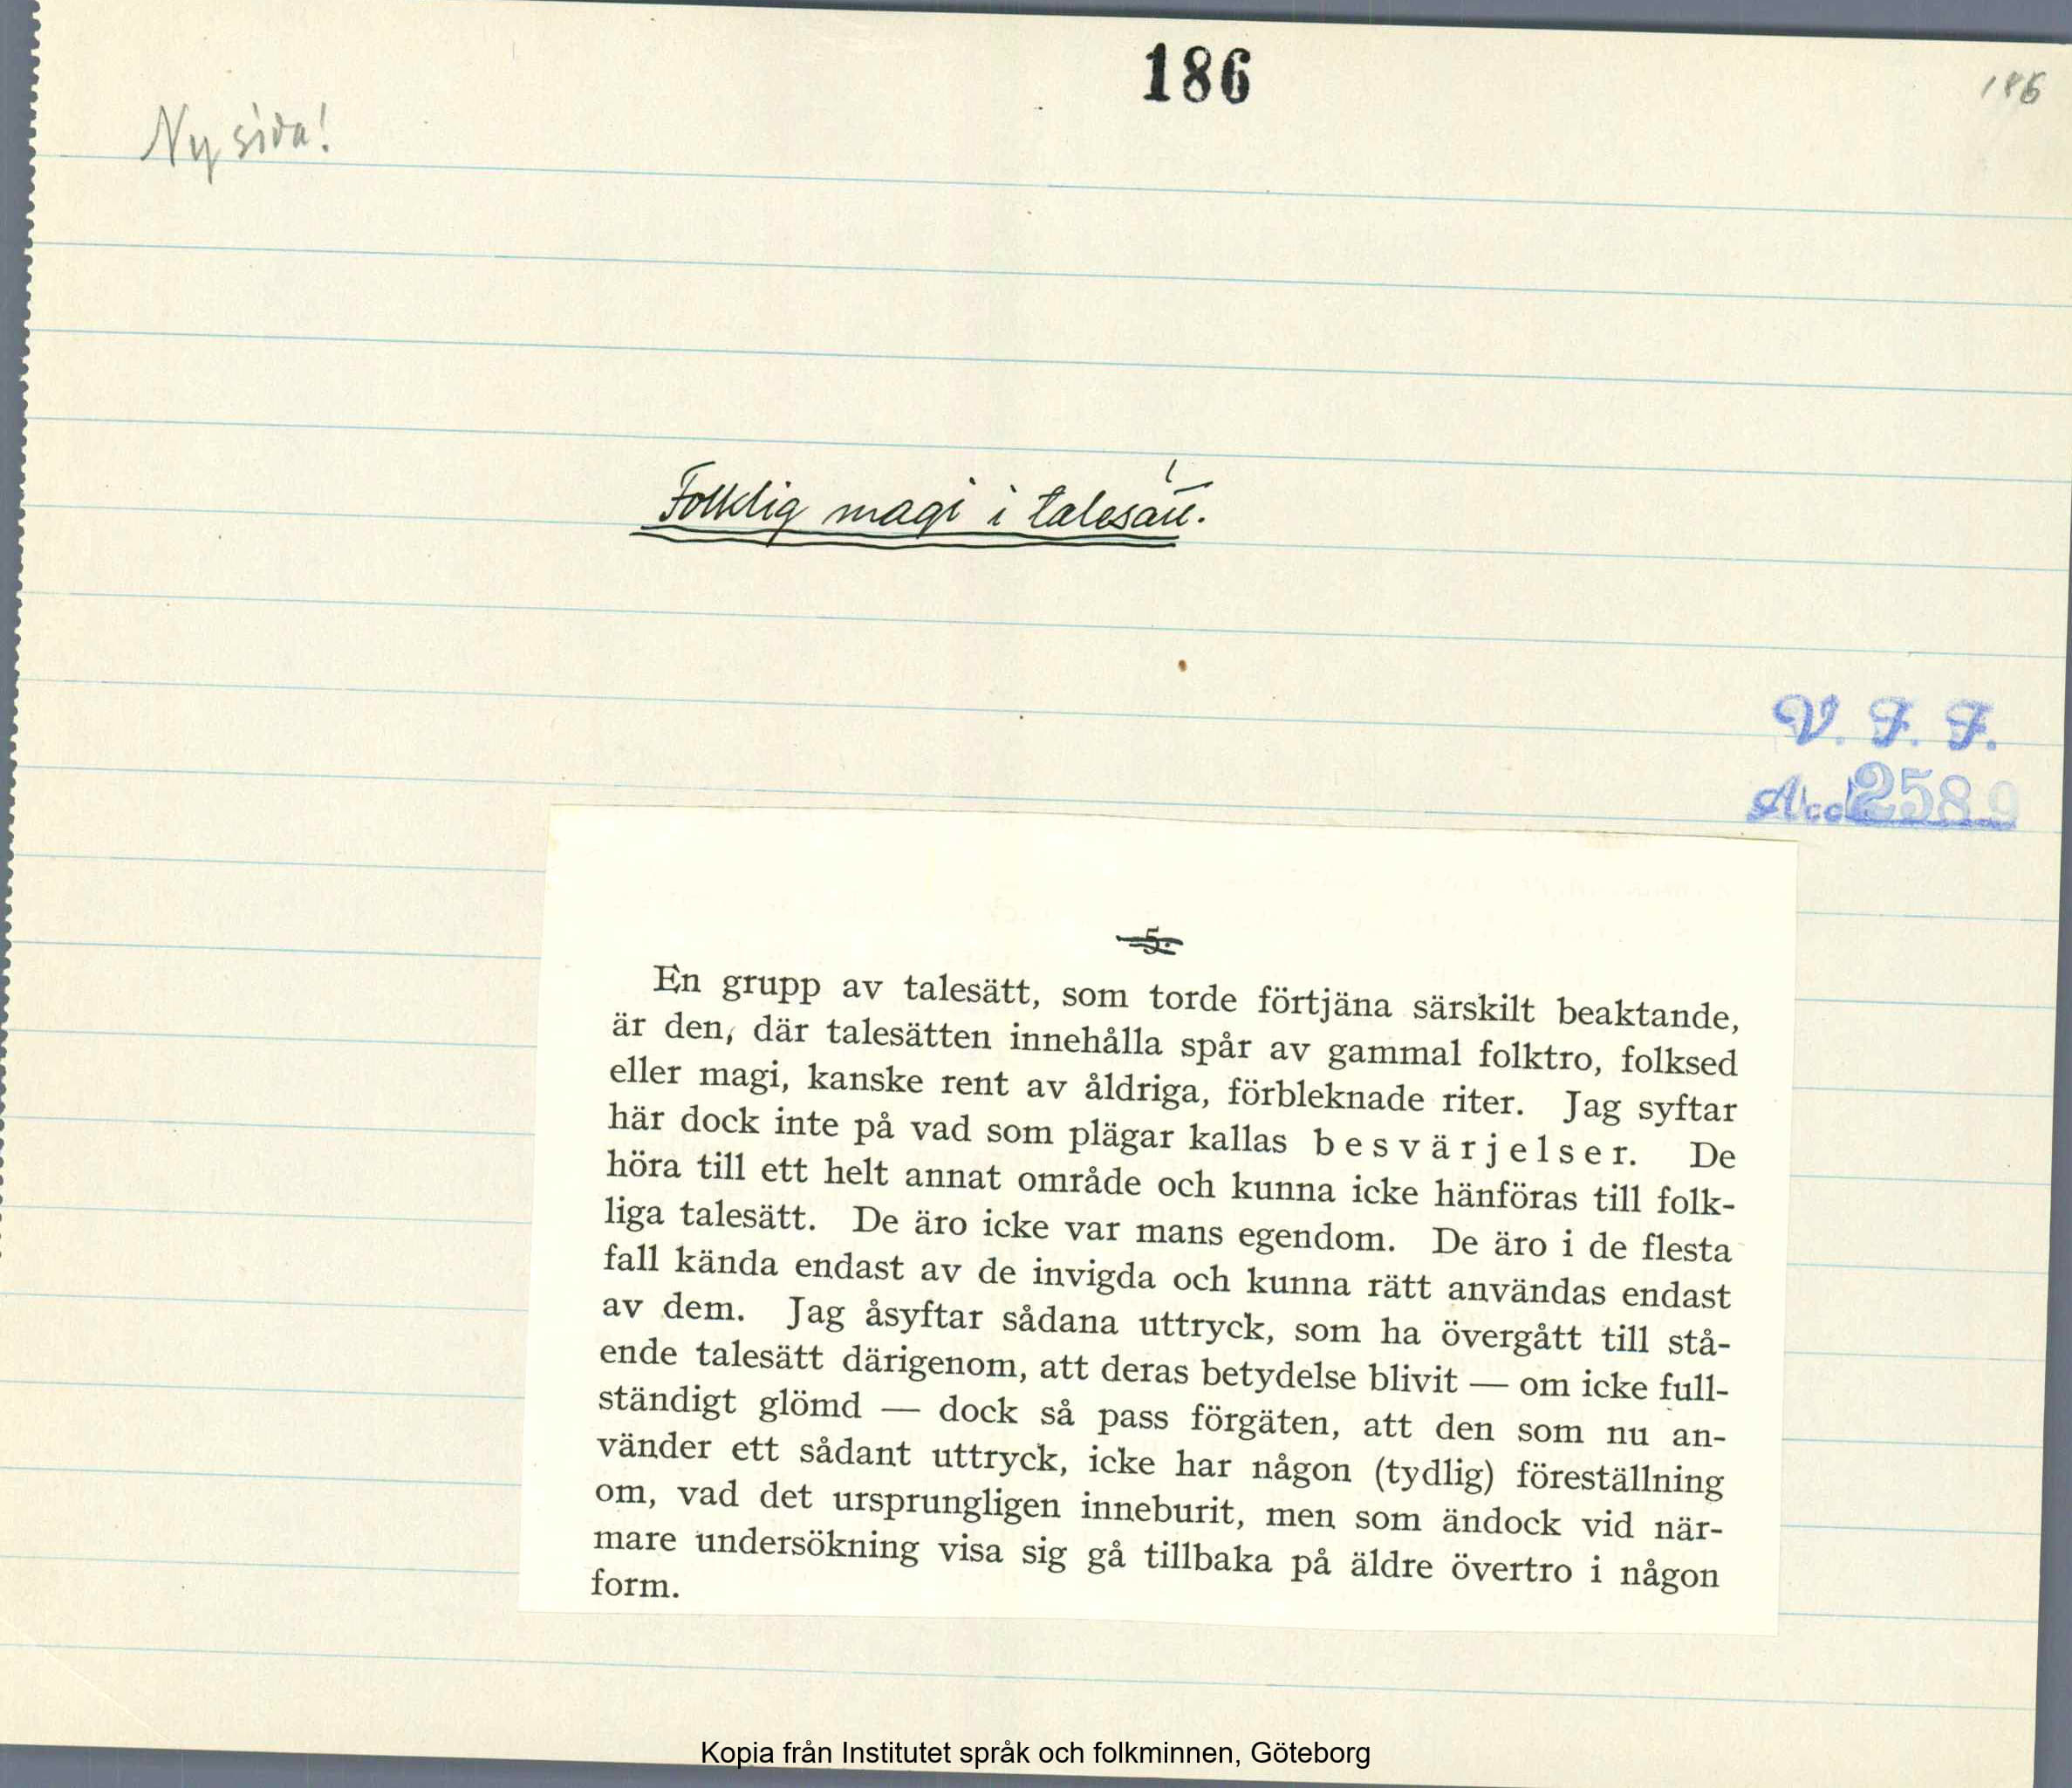 186
186
Ny sida!
Folklig magi i talesätt.
V. F. F.
Acc 2589
5.
En grupp av talesätt, som torde förtjäna särskilt beaktande,
är den, där talesätten innehålla spår av gammal folktro, folksed
eller magi, kanske rent av åldriga, förbleknade riter. Jag syftar
här dock inte på vad som plägar kallas besvärjelser. De
höra till ett helt annat område och kunna icke hänföras till folk-
liga talesätt. De äro icke var mans egendom. De äro i de flesta
fall kända endast av de invigda och kunna rätt användas endast
av dem. Jag åsyftar sådana uttryck, som ha övergått till stå-
ende talesätt därigenom, att deras betydelse blivit — om icke full-
ständigt glömd — dock så pass förgäten, att den som nu an-
vänder ett sådant uttryck, icke har någon (tydlig) föreställning
om, vad det ursprungligen inneburit, men som ändock vid när-
mare undersökning visa sig gå tillbaka på äldre övertro i någon
form.
Kopia från Institutet språk och folkminnen, Göteborg